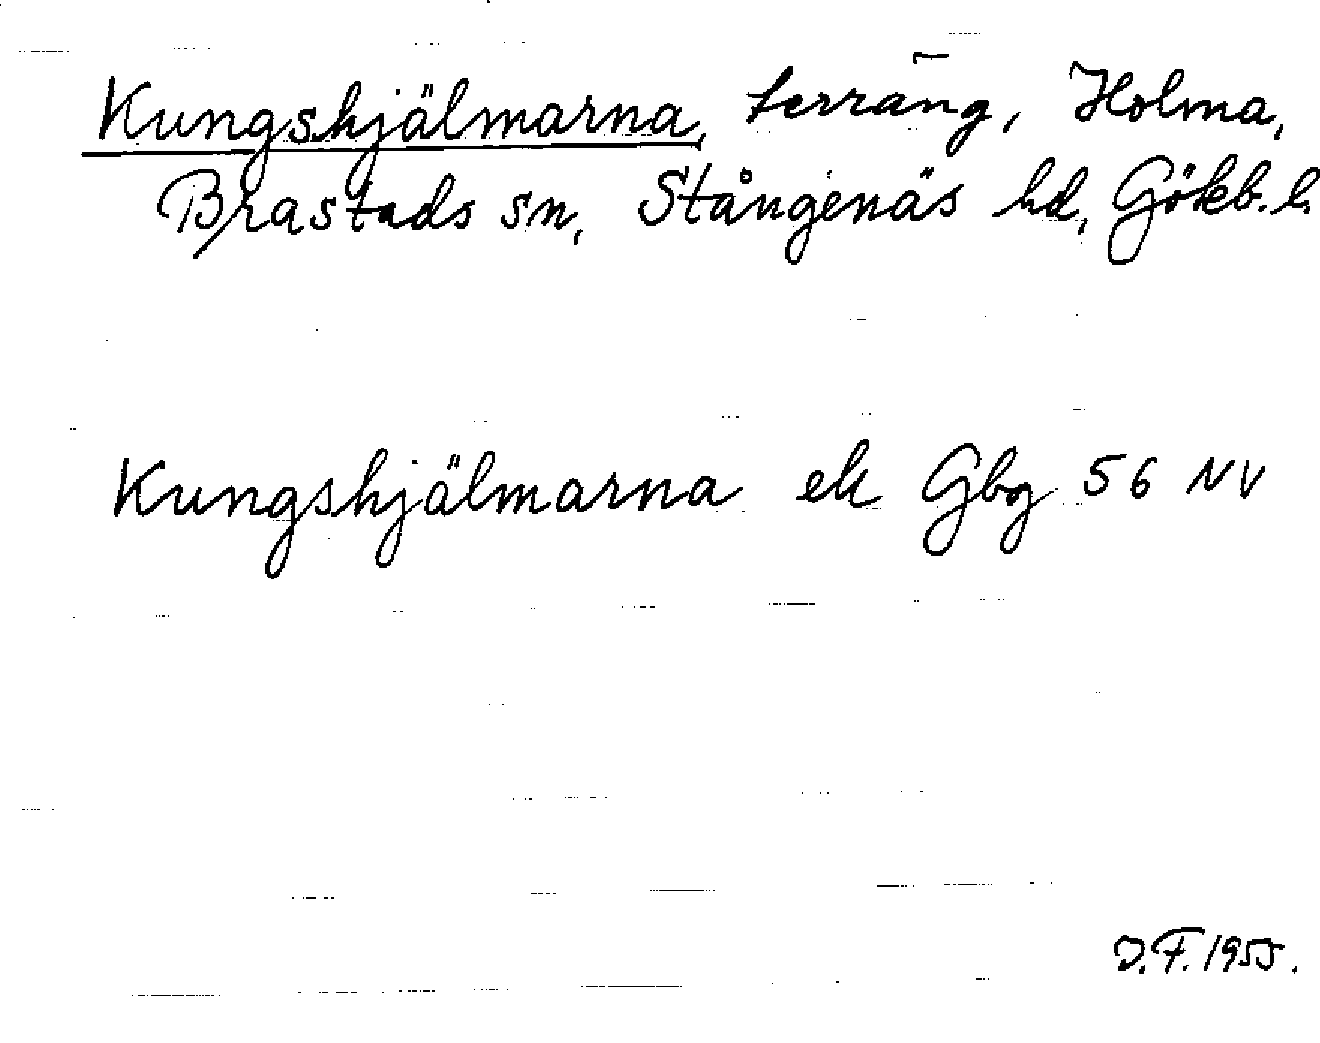 Kungshjälmarna, terräng, Holma,
Brastads sn, Stångenäs hd, Gökb. l.
Kungshjälmarna ek Gbg 56 NV
D.F. 1955.